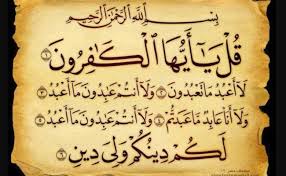 بِسْمِ اللَّهِ الرَّحْمَٰنِ الرَّحِيمِ
قُلْ يَا أَيُّهَا الْكَافِرُونَ ١
لَا أَعْبُدُ مَا تَعْبُدُونَ ٢ وَلَا أَنتُمْ عَابِدُونَ مَا أَعْبُدُ ٣
وَلَا أَنَا عَابِدٌ مَّا عَبَدتُّمْ ٤ وَلَا أَنتُمْ عَابِدُونَ مَا أَعْبُدُ ٥
لَكُمْ دِينُكُمْ وَلِيَ دِينِ ٦